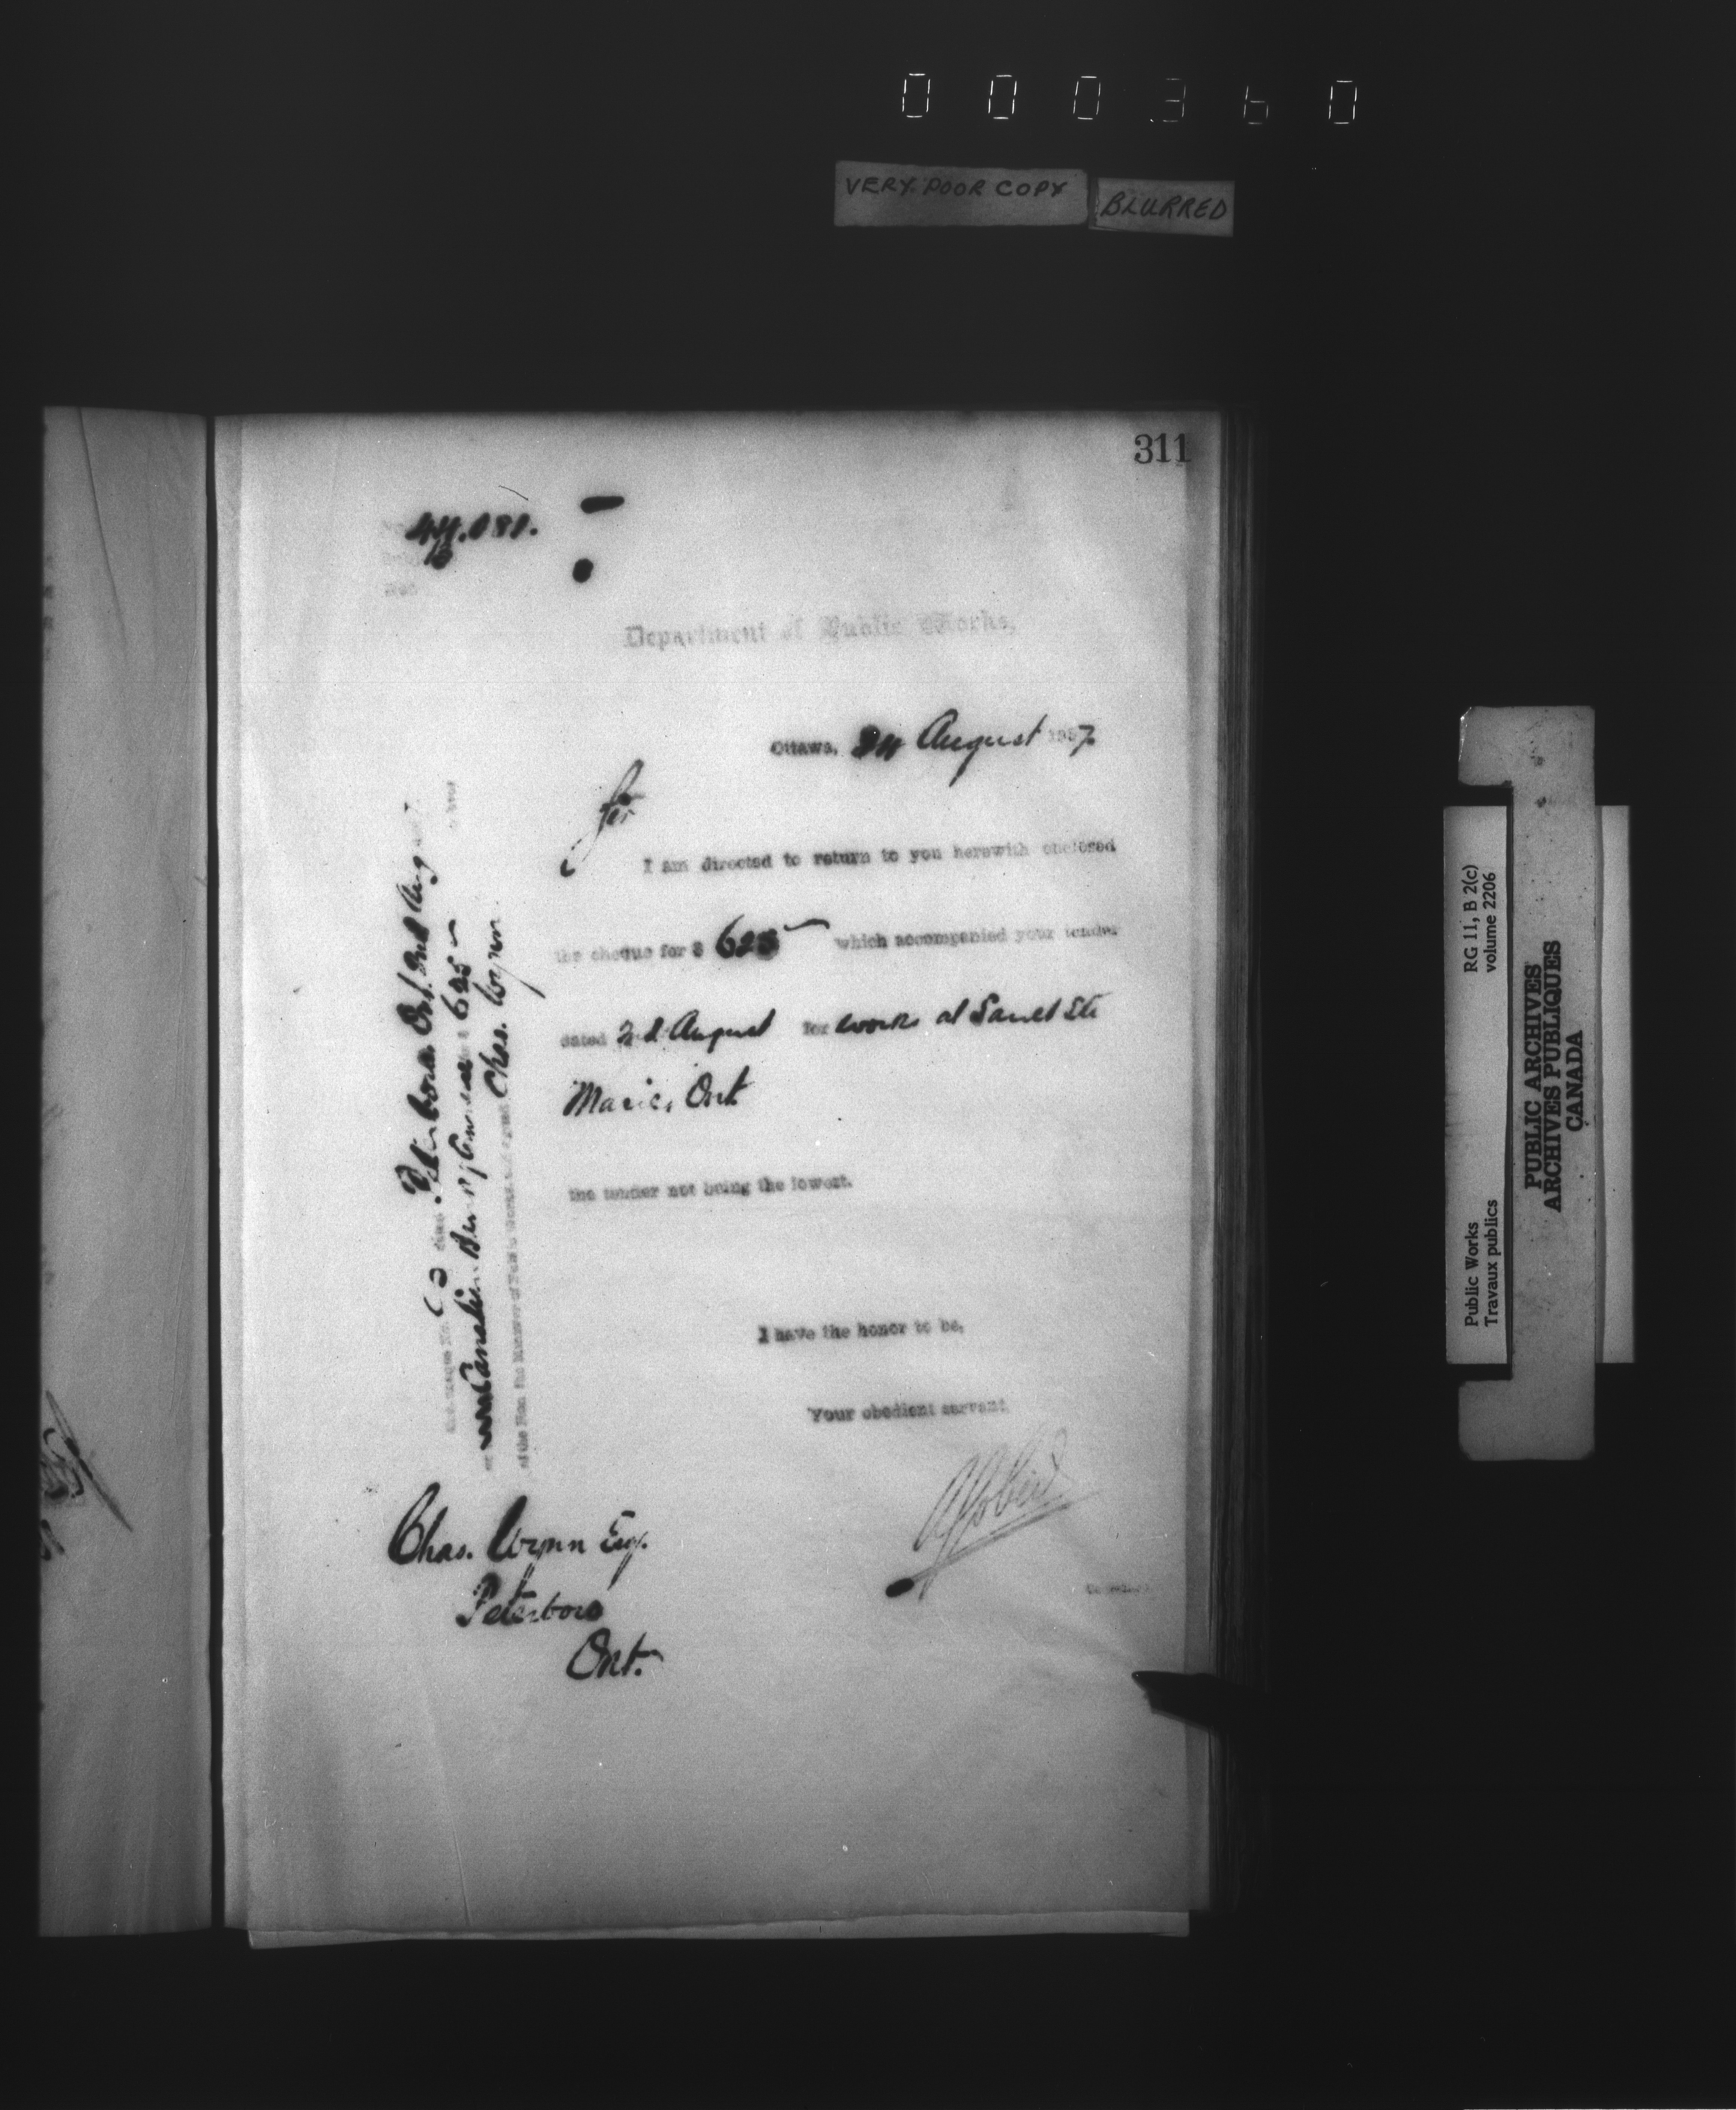 000360
VERY POOR COPY
BLURRED
311
Department of Public Works,
Ottawa, August
Sir
I am directed to return to you herewith enclosed
the cheque for $ 625 which accompanied your tender
dated August for works at Sault Ste
Marie, Ont
the tender not being the lowest.
I have the honor to be,
Your obedient servant,
Chas. Wynn Esq.
Peterboro
Ont.
cheque No. Peterboro. Ont. Aug
Canadian 625
of the Hon the Minister of Public Works and signed Chas. Wynn
Public Works
Travaux publics
RG 11, B 2(c)
volume 2206
PUBLIC ARCHIVES
ARCHIVES PUBLIQUES
CANADA